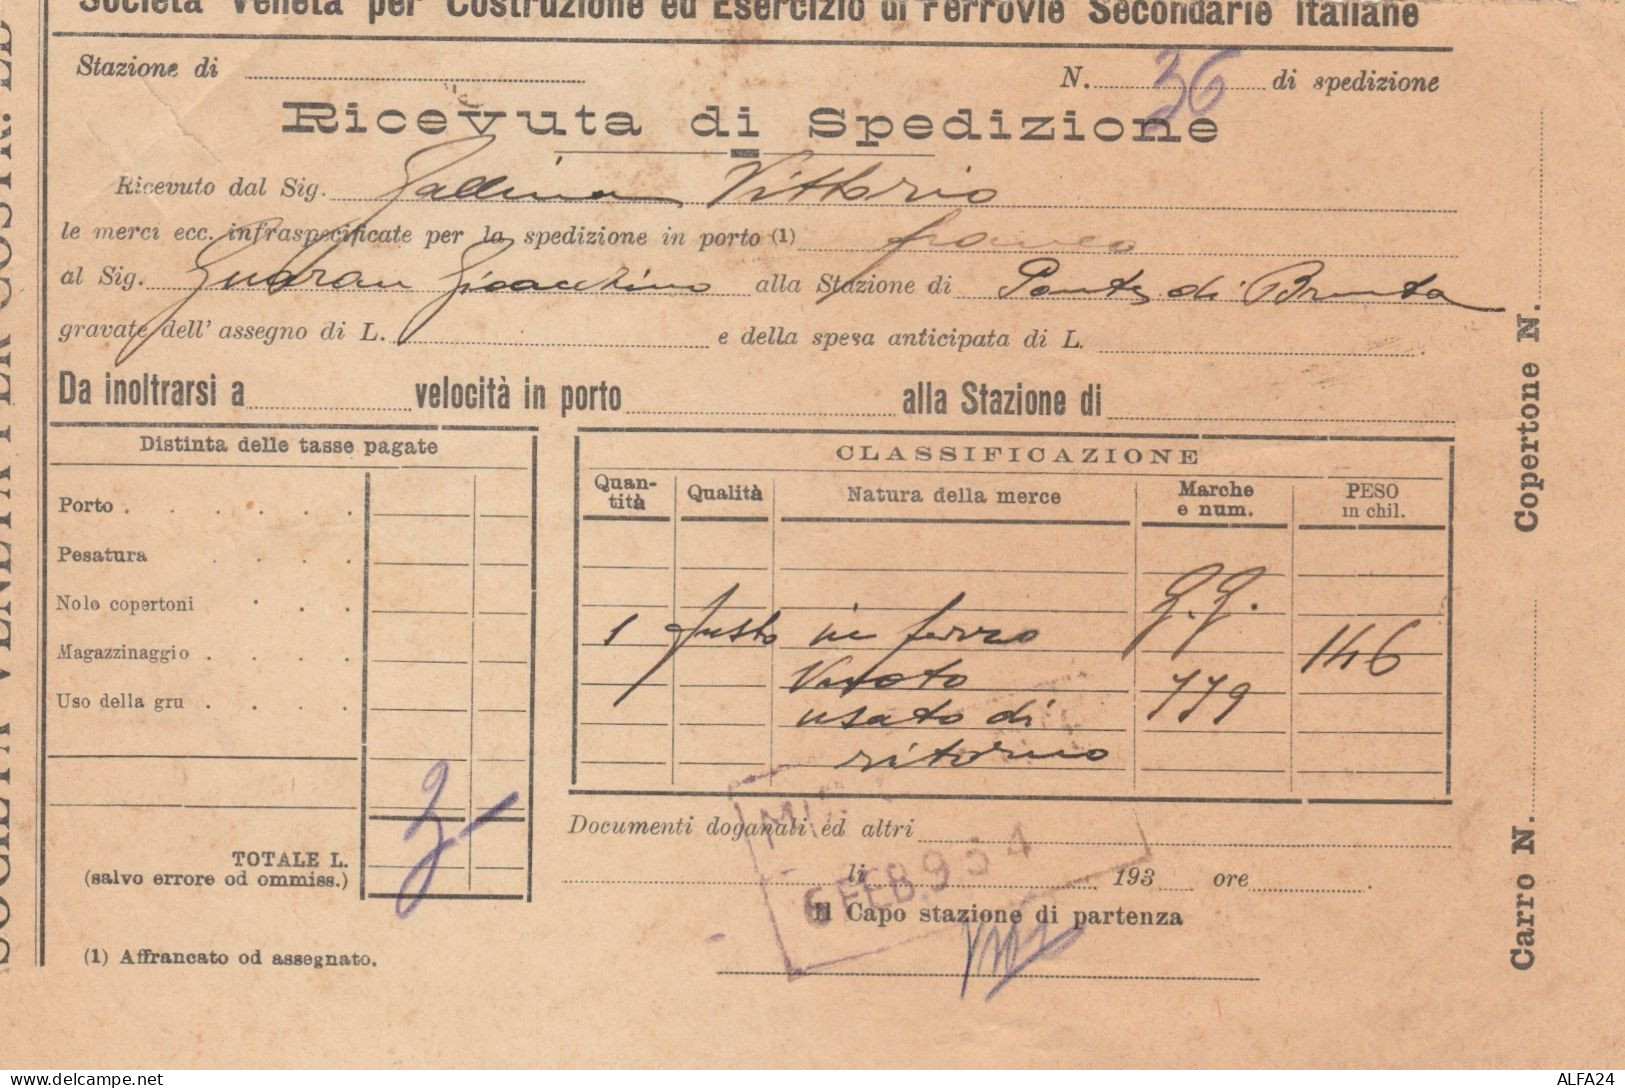 Società Veneta per Costruzione ed Esercizio di Ferrovie Secondarie Italiane
Stazione di
N. 36 di spedizione
Ricevuta di Spedizione
Ricevuto dal Sig. Gallina Vittorio
le merci ecc. infraspecificate per la spedizione in porto (1) franco
al Sig. Gudran Gioacchino alla Stazione di Ponte di Brenta
gravate dell' assegno di L. e della spesa anticipata di L.
Da inoltrarsi a velocità in porto alla Stazione di
Distinta delle tasse pagate
Porto
Pesatura
Nolo copertoni
Magazzinaggio
Uso della gru
3-
TOTALE L.
(salvo errore od ommiss.)
(1) Affrancato od assegnato.
CLASSIFICAZIONE
Quan-
tità
Qualità
Natura della merce
Marche
e num.
PESO
in chil.
1 fusto in ferro G.G. 146
Vuoto 779
usato di
ritorno
Documenti doganali ed altri
li 193 ore
6 FEB. 934
Il Capo stazione di partenza
Copertone N.
Carro N.
SOCIETÀ VENETA PER COSTR. ED
ALFA24